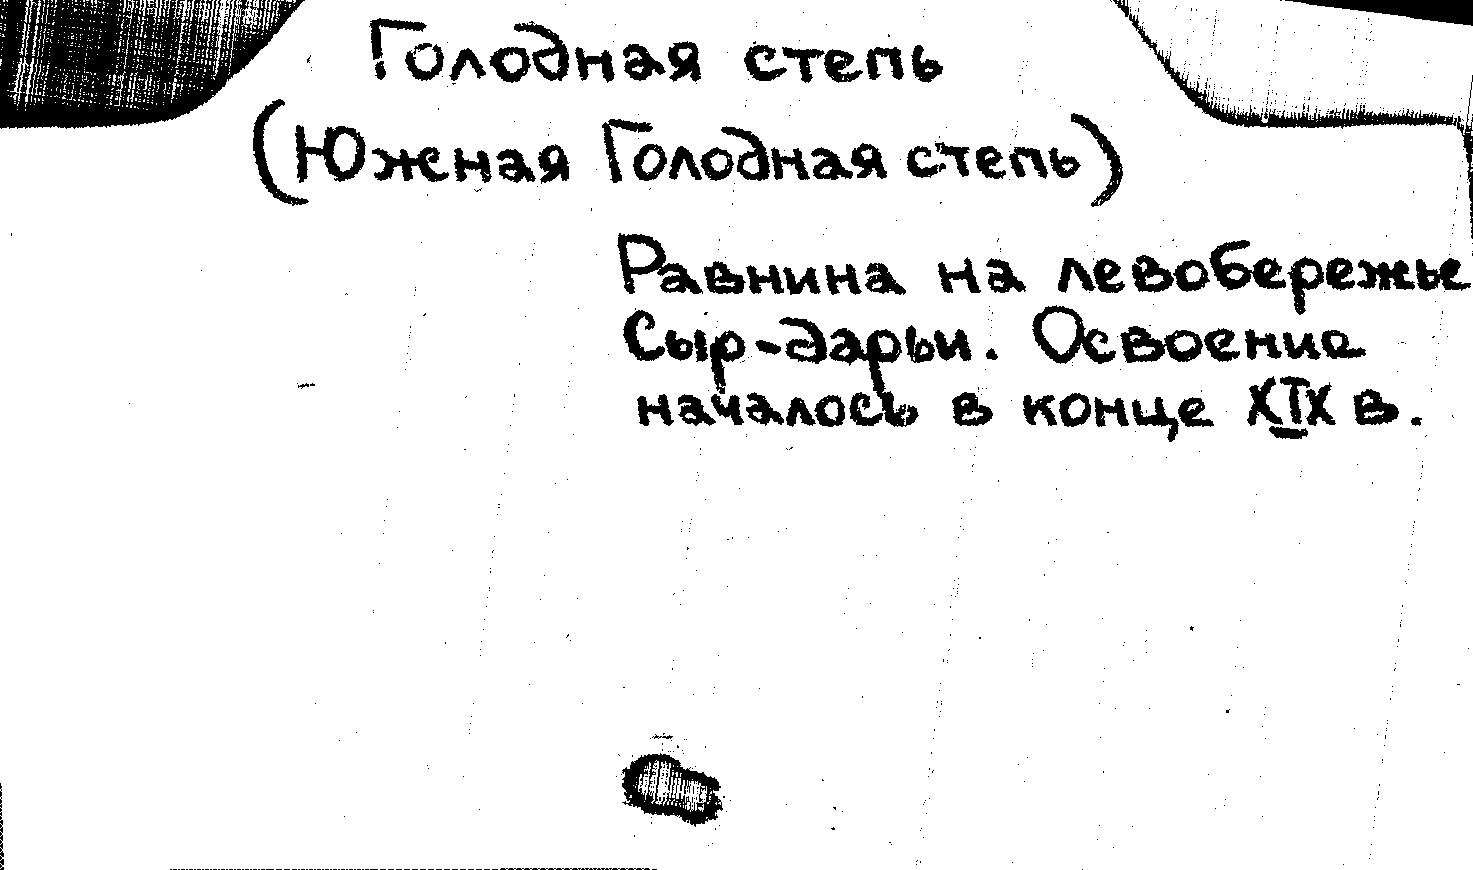 Голодная степь
(Южная Голодная степь)
Равнина на левобережье
Сыр-дарьи. Освоение
началось в конце XIX в.